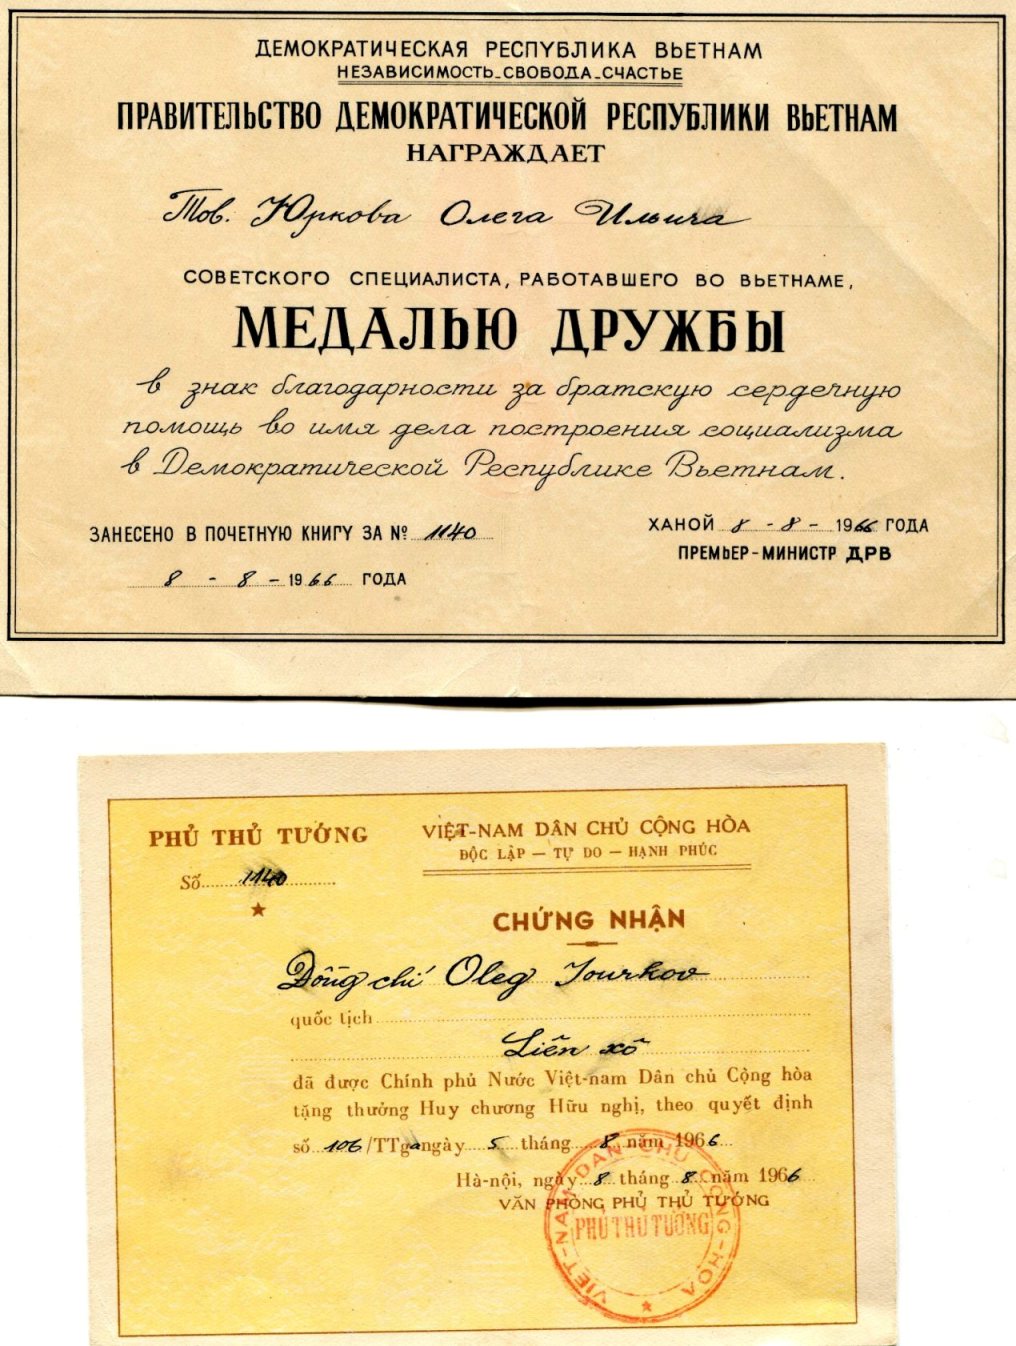 ДЕМОКРАТИЧЕСКАЯ РЕСПУБЛИКА ВЬЕТНАМ
НЕЗАВИСИМОСТЬ-СВОБОДА-СЧАСТЬЕ
ПРАВИТЕЛЬСТВО ДЕМОКРАТИЧЕСКОЙ РЕСПУБЛИКИ ВЬЕТНАМ
НАГРАЖДАЕТ
Тов. Юркова Олега Ильича
СОВЕТСКОГО СПЕЦИАЛИСТА, РАБОТАВШЕГО ВО ВЬЕТНАМЕ,
МЕДАЛЬЮ ДРУЖБЫ
в знак благодарности за братскую сердечную
помощь во имя дела построения социализма
в Демократической Республике Вьетнам.
ЗАНЕСЕНО В ПОЧЕТНУЮ КНИГУ ЗА № 1140
8 - 8 - 1966 ГОДА
ХАНОЙ 8 - 8 - 1966 ГОДА
ПРЕМЬЕР-МИНИСТР ДРВ
PHỦ THỦ TƯỚNG
Số 1140
VIỆT-NAM DÂN CHỦ CỘNG HÒA
ĐỘC LẬP — TỰ DO — HẠNH PHÚC
CHỨNG NHẬN
Đồng chí Oleg Iourkov
quốc tịch
Liên xô
đã được Chính phủ Nước Việt-nam Dân chủ Cộng hòa
tặng thưởng Huy chương Hữu nghị, theo quyết định
số 106/TTga ngày 5 tháng 8 năm 1966
Hà-nội, ngày 8 tháng 8 năm 1966
VĂN PHÒNG PHỦ THỦ TƯỚNG
VIỆT-NAM DÂN CHỦ CỘNG-HÒA
PHỦ THỦ TƯỚNG